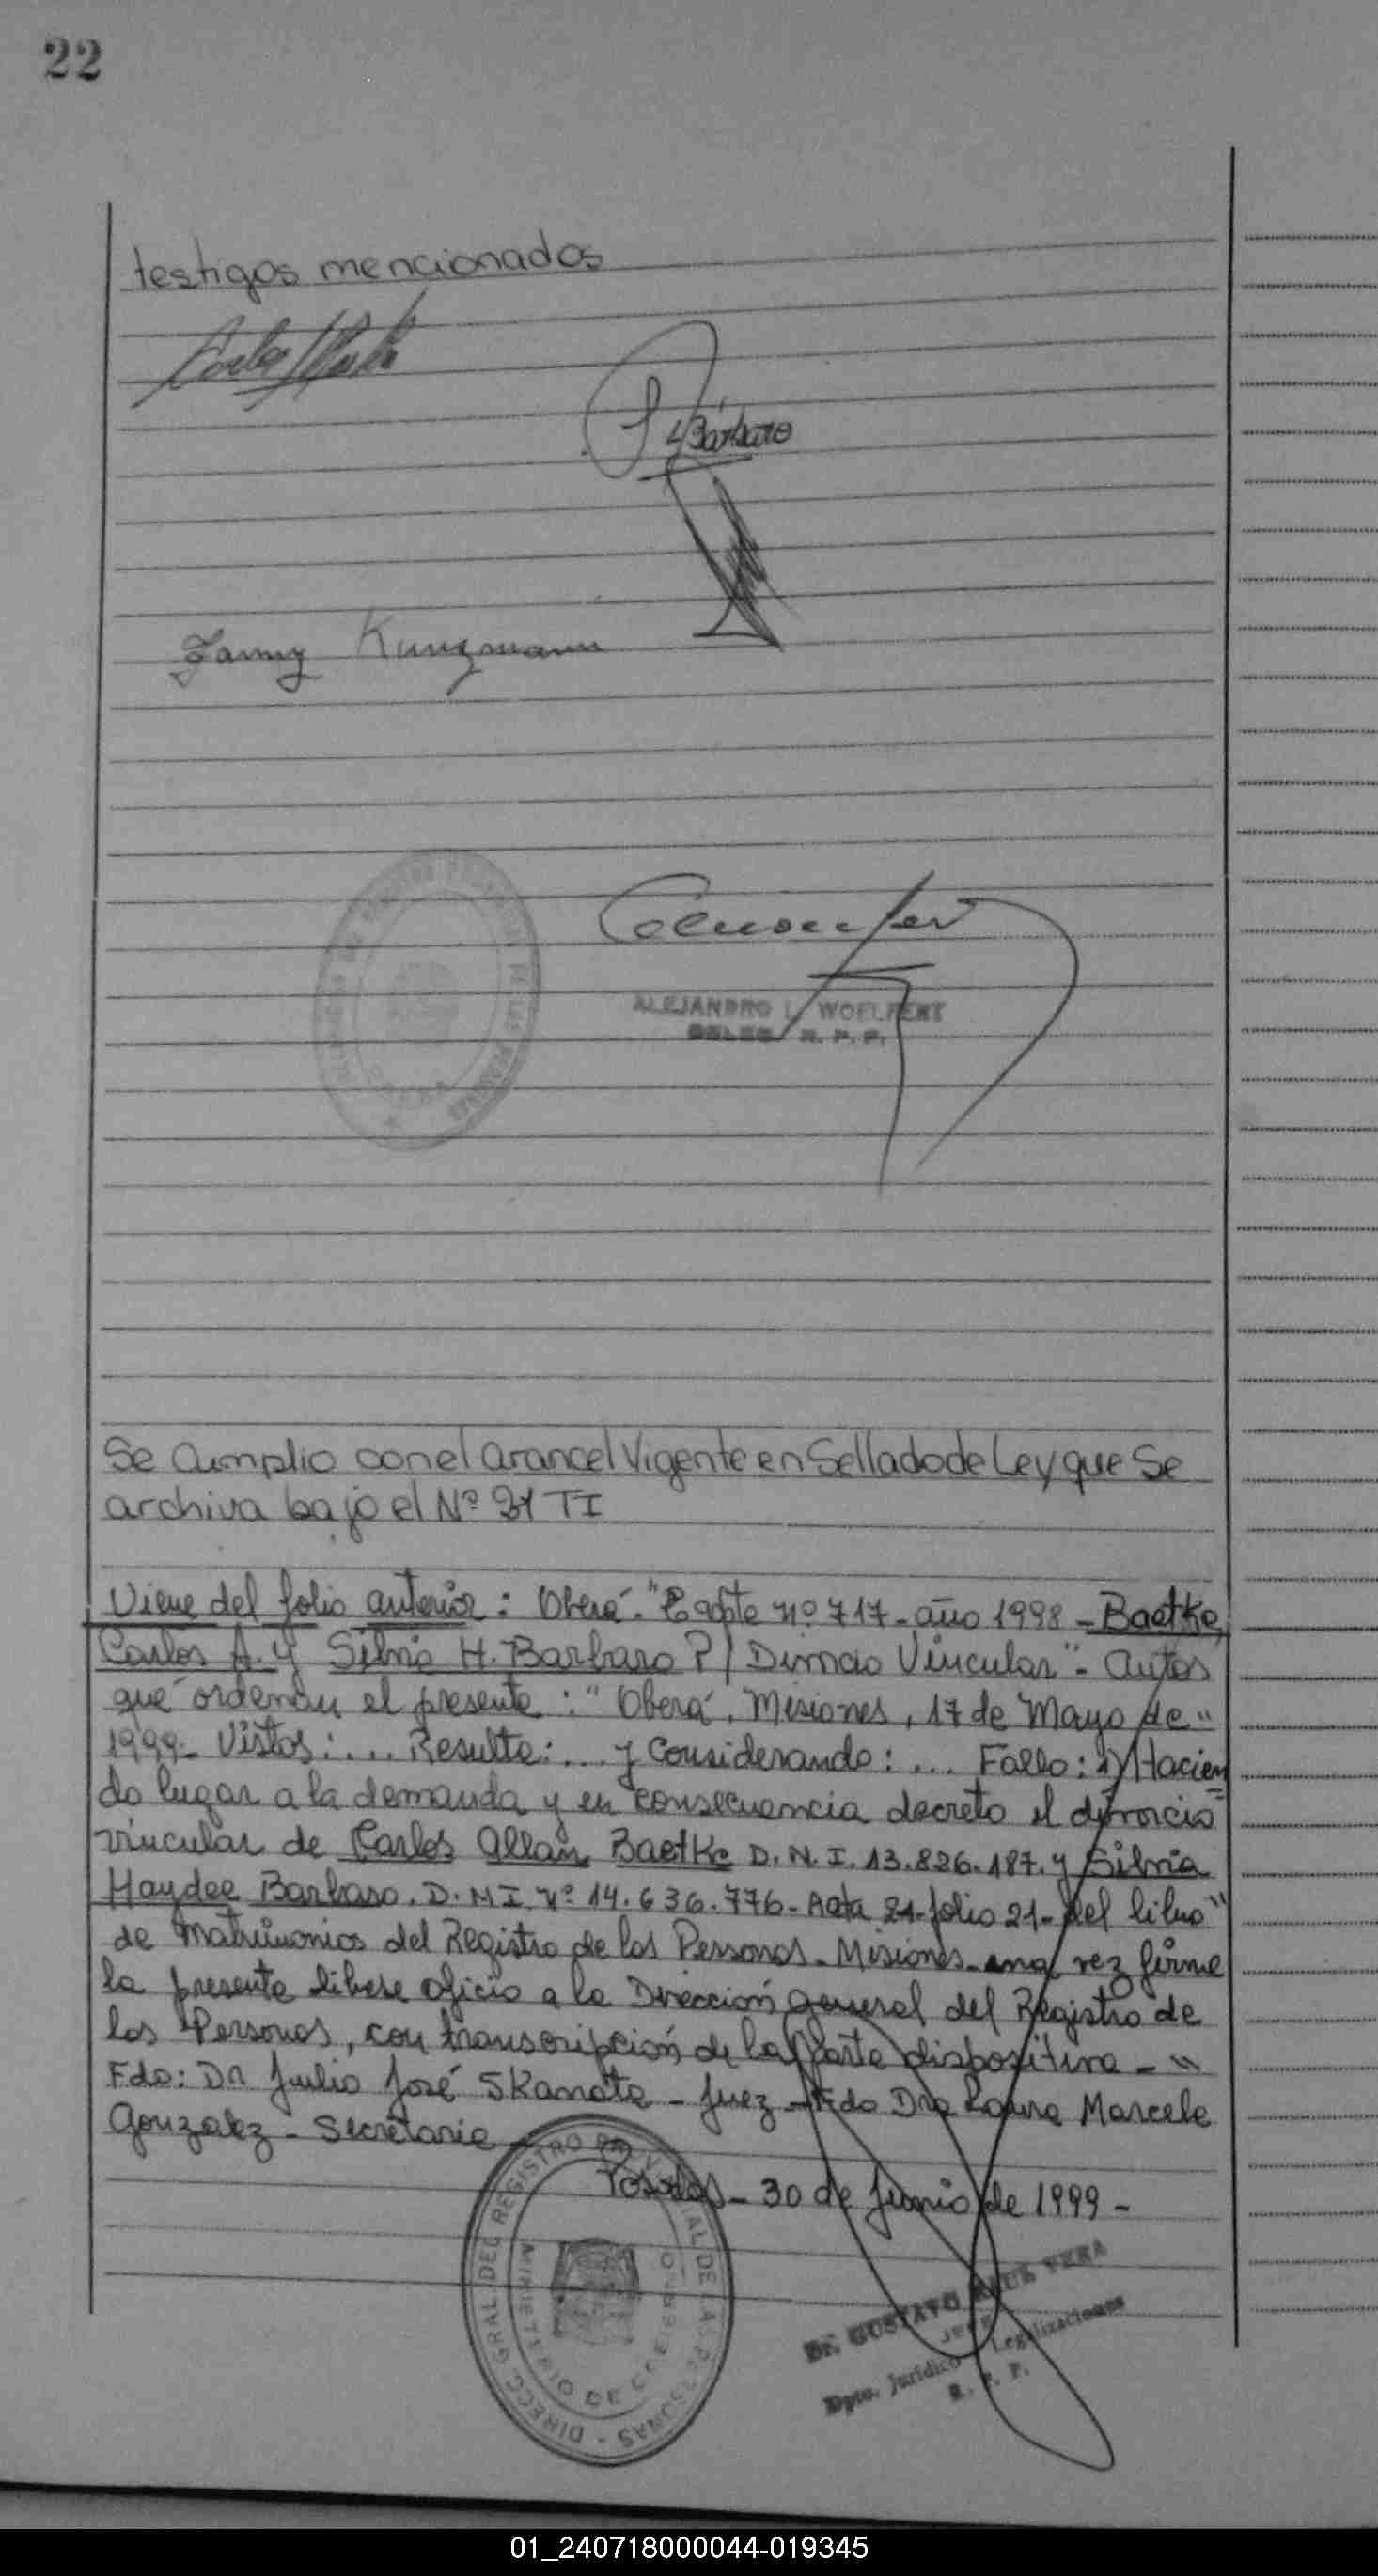 22
testigos mencionados
Barbaro
Fanny Kunzmann
ALEJANDRO L. WOELFERT
R. P. P.
Se Cumplio con el arancel Vigente en Sellado de Ley que Se
archiva bajo el Nº 21 TI
Viene del folio anterior: Oberá. "Expte nº 717 - año 1998 - Baetke,
Carlos A. y Silvia H. Barbaro P/ Divorcio Vincular" - Autos
que ordenan el presente: "Oberá, Misiones, 17 de Mayo de "
1999 - Vistos: ... Resulta: ... y Considerando: ... Fallo: 1) Hacien
do lugar a la demanda y en consecuencia decreto el divorcio
vincular de Carlos Allan Baetke D. N. I. 13.826.187. y Silvia
Haydee Barbaro. D. N I. nº 14.636.776 - Acta 21 - folio 21 - del libro "
de Matrimonios del Registro de las Personas - Misiones - una vez firme
la presente líbese oficio a la Dirección general del Registro de
las Personas, con transcripción de la parte dispositiva - "
Fdo: Dr Julio José Skanata - Juez - Fdo Dra Laura Marcela
Gonzalez - Secretaria
Posadas - 30 de Junio de 1999 -
DIRECC. GRAL. DEL REGISTRO PROVINCIAL DE LAS PERSONAS
MINISTERIO DE GOBIERNO
Dr. GUSTAVO VERA
JEFE
Dpto. Jurídico Legalizaciones
R. P. P.
01_240718000044-019345